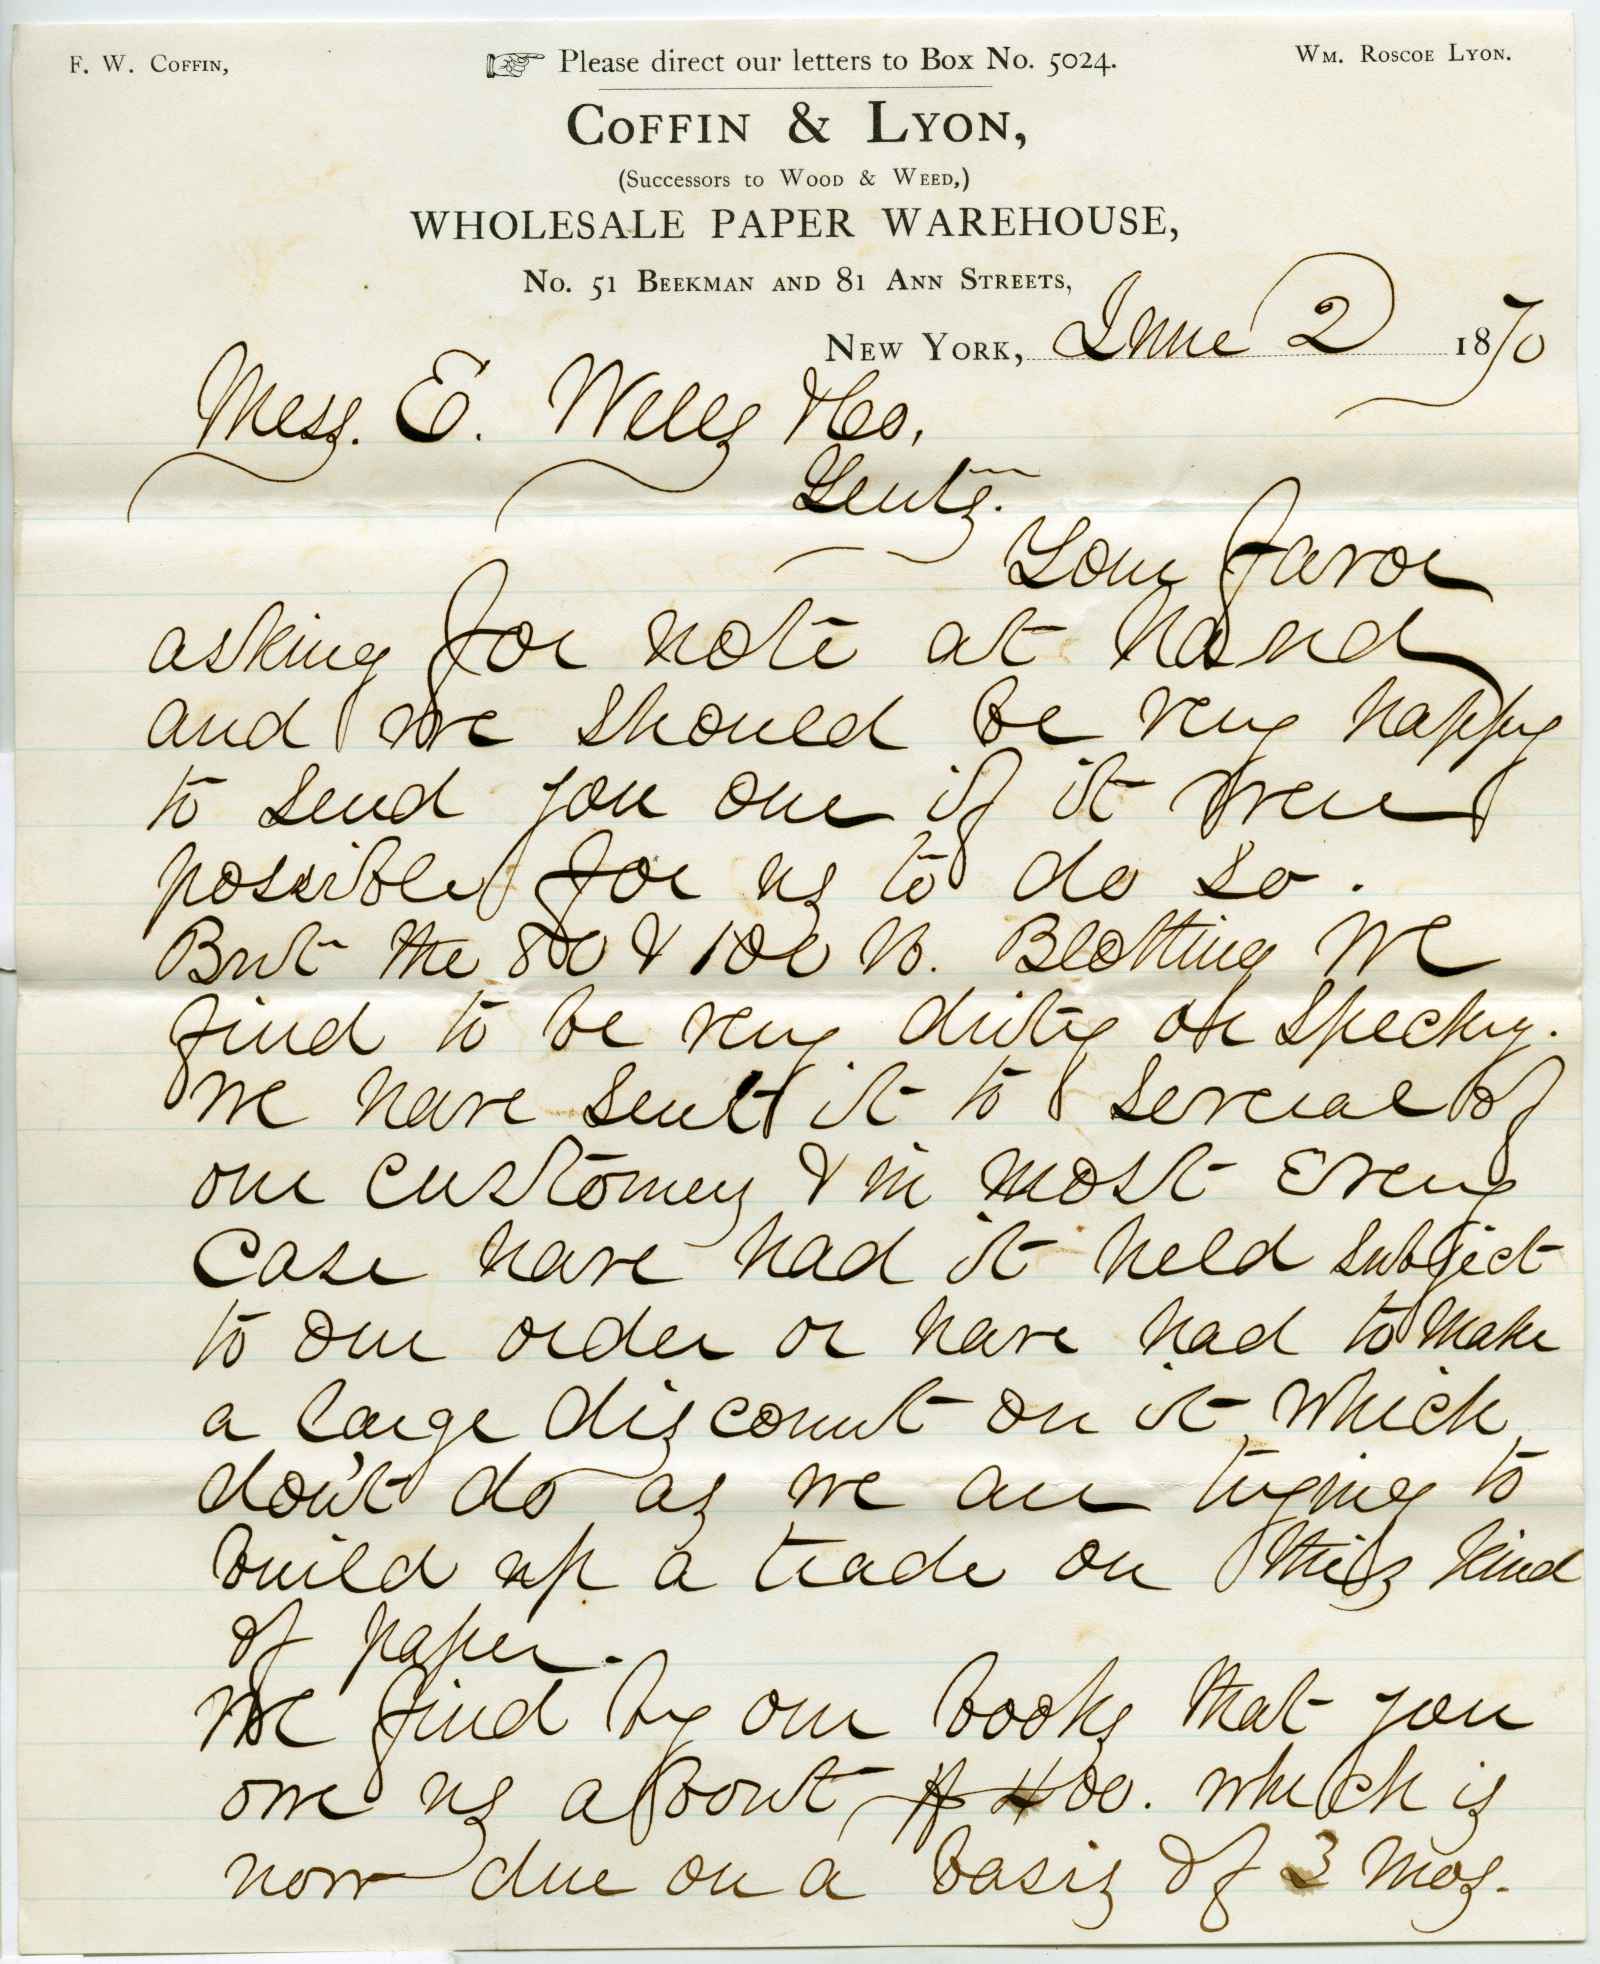 F. W. Coffin,
Please direct our letters to Box No. 5024.
Wm. Roscoe Lyon.
Coffin & Lyon,
(Successors to Wood & Weed,)
WHOLESALE PAPER WAREHOUSE,
No. 51 Beekman and 81 Ann Streets,
New York, June 2 1870
Mess. E. Wells & Co,
Gents.
Your favor
asking for note at hand
and we should be very happy
to send you one if it were
possible for us to do so.
But the 80 & 100 lb. Blotting we
find to be very dirty or specky.
We have sent it to several of
our customers & in most every
case have had it held subject
to our order or have had to make
a large discount on it, which
don't do as we are trying to
build up a trade on this kind
of paper.
We find by our books that you
owe us about $400. which is
now due on a basis of 3 mos.